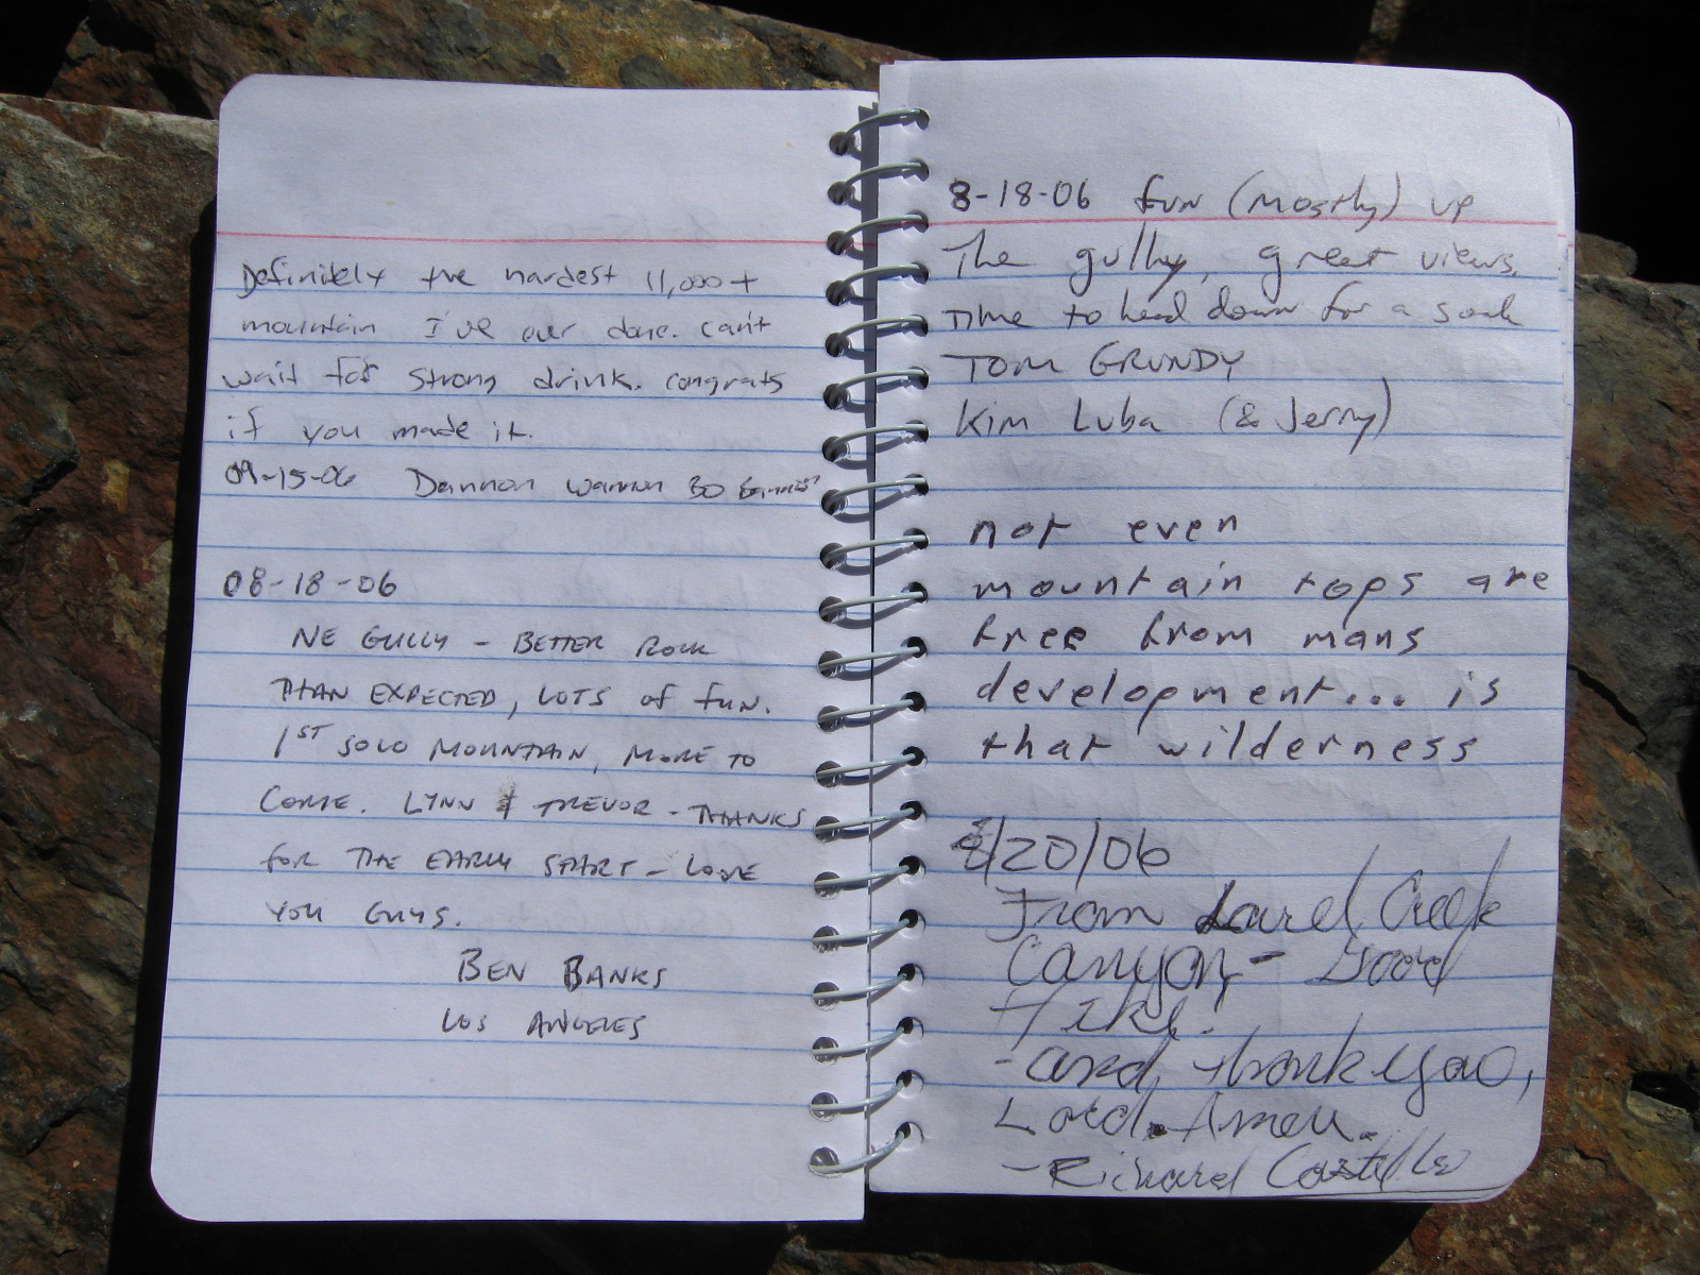 Definitely the hardest 11,000+
mountain I've ever done. can't
wait for strong drink. congrats
if you made it.
09-15-06 Dannon 30
08-18-06
NE GULLY - BETTER ROCK
THAN EXPECTED, LOTS OF FUN.
1ST SOLO MOUNTAIN, MORE TO
COME. LYNN & TREVOR - THANKS
FOR THE EARLY START - LOVE
YOU GUYS.
BEN BANKS
LOS ANGELES
8-18-06 fun (mostly) up
The gully, great views.
Time to head down for a soak
TOM GRUNDY
Kim Luba (& Jerry)
not even
mountain tops are
free from mans
development... is
that wilderness
8/20/06
From Laurel Creek
Canyon - Good
Hike!
- and, thank you,
Lord. Amen.
- Richard